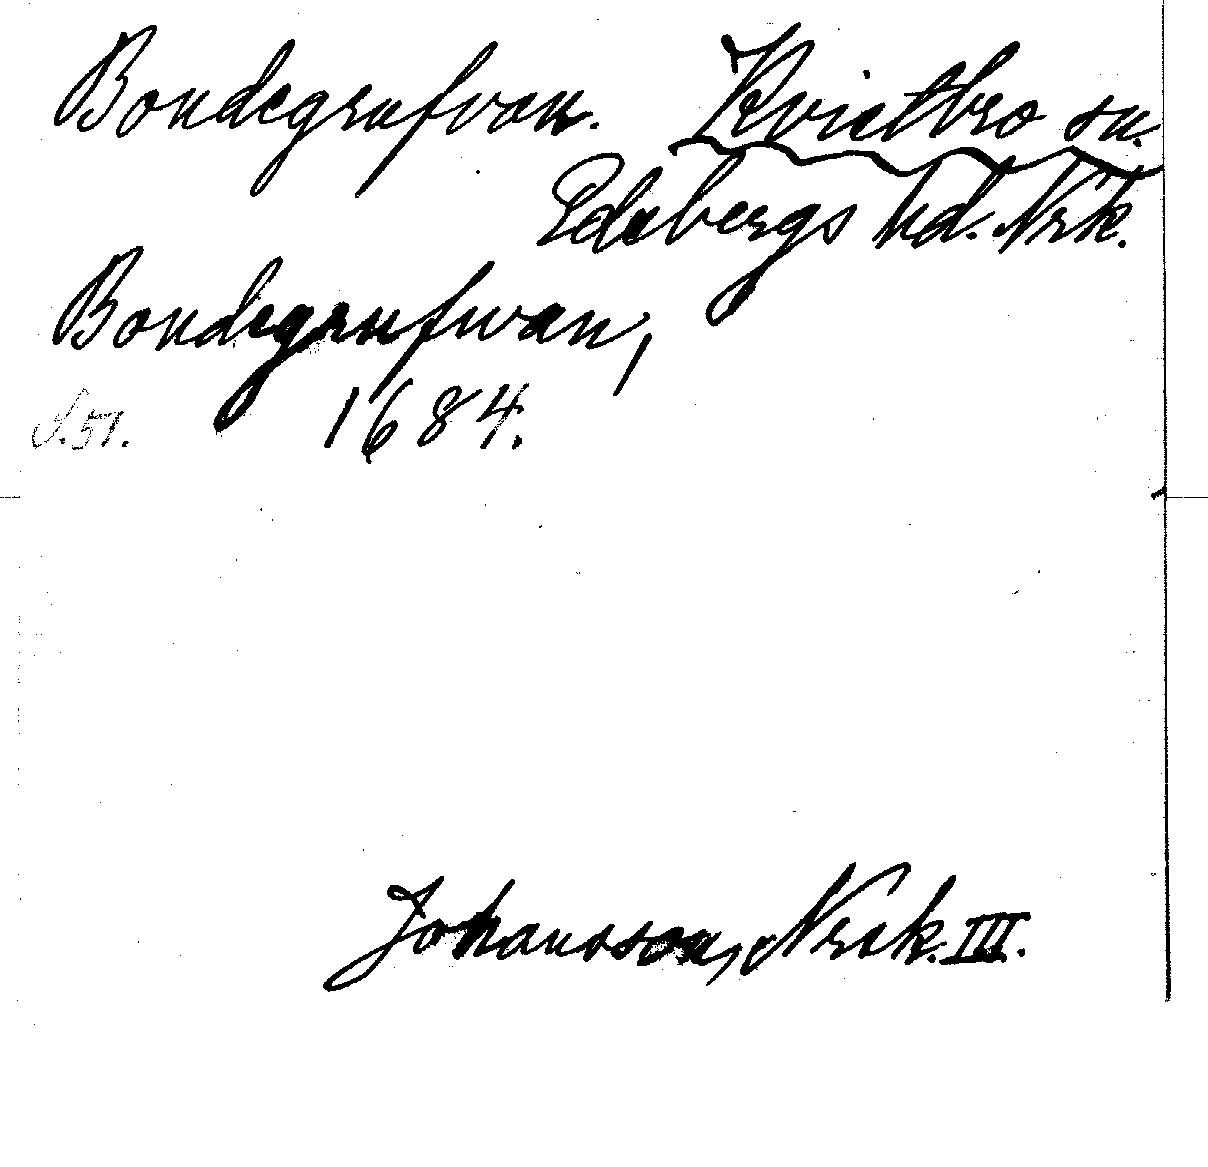 Bondegrufvan. Kvistbro sn.
Edsbergs hd. Nrk.
Bondegrufwan,
S. 51. 1684.
Johansson, Nrsk. III.